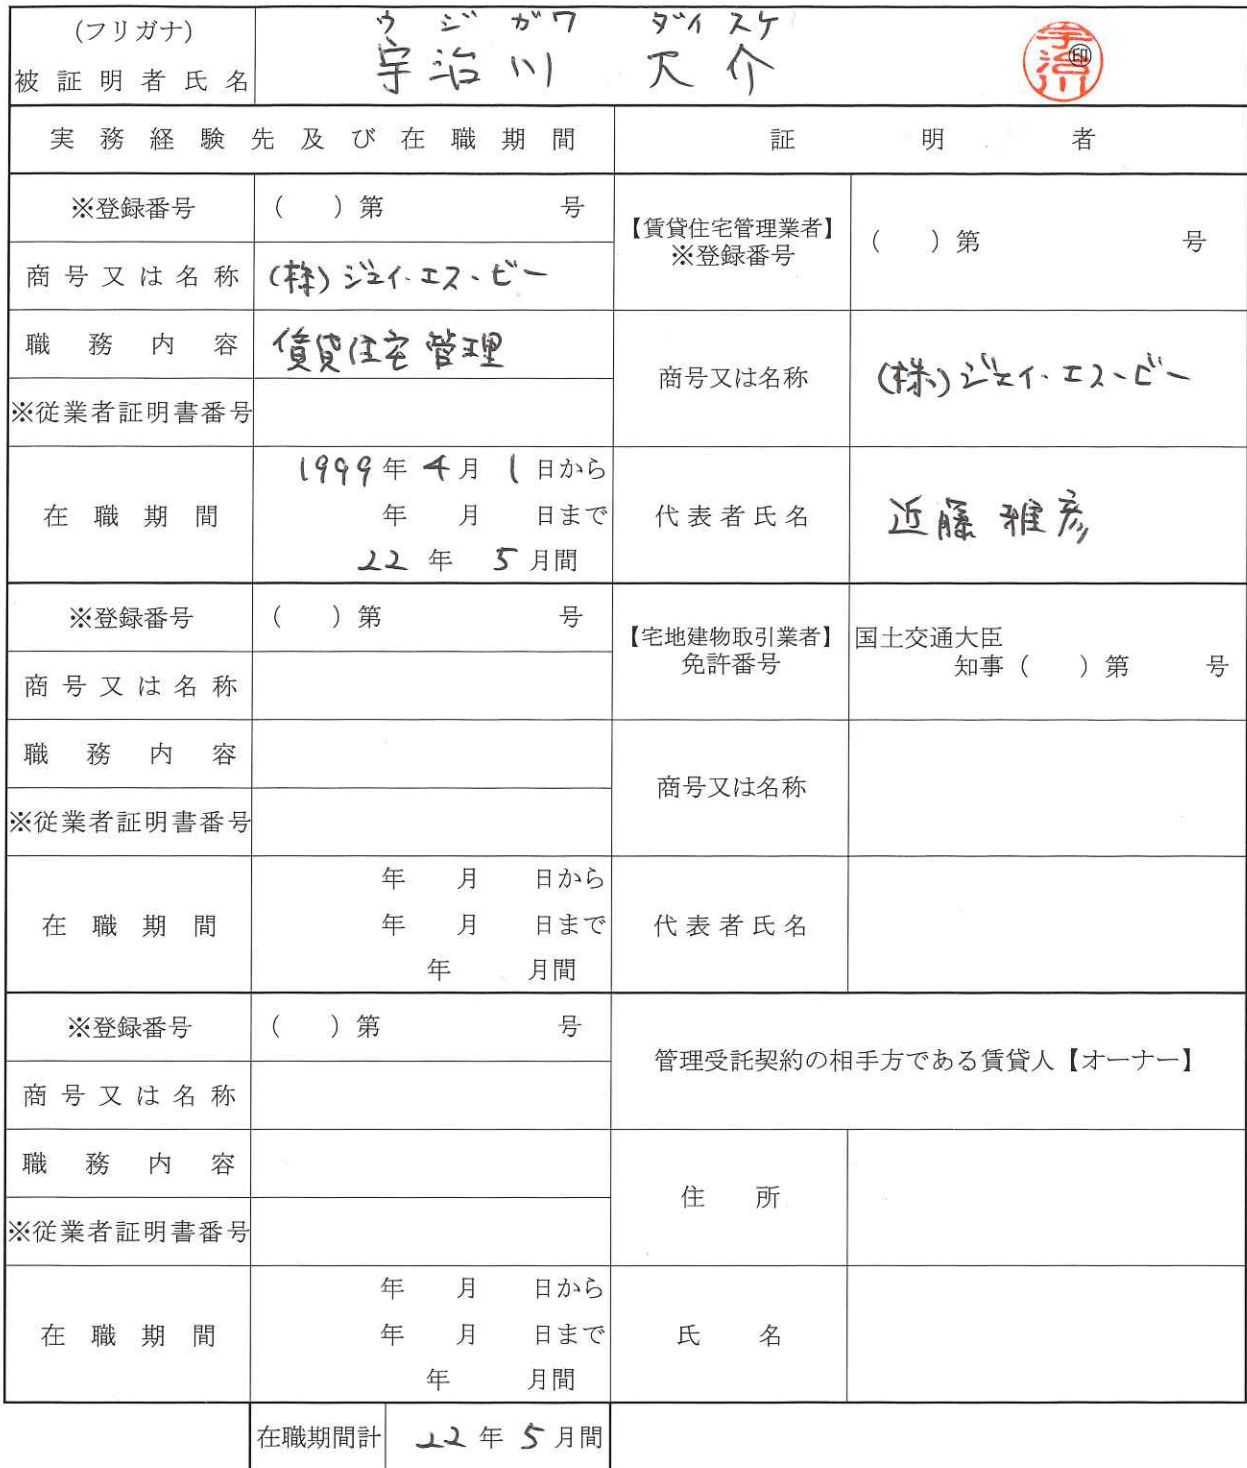 (フリガナ) ウジガワ ダイスケ
被証明者氏名 宇治川 大介 宇治川 ㊞
実務経験先及び在職期間 証明者
※登録番号 ( )第 号
【賃貸住宅管理業者】
※登録番号 ( )第 号
商号又は名称 (株)ジェイ・エス・ビー
職務内容 賃貸住宅管理
商号又は名称 (株)ジェイ・エス・ビー
※従業者証明書番号
在職期間
1999年 4月 1日から
年 月 日まで
22年 5月間
代表者氏名 近藤 雅彦
※登録番号 ( )第 号
【宅地建物取引業者】
免許番号
国土交通大臣
知事( )第 号
商号又は名称
職務内容
商号又は名称
※従業者証明書番号
在職期間
年 月 日から
年 月 日まで
年 月間
代表者氏名
※登録番号 ( )第 号
管理受託契約の相手方である賃貸人【オーナー】
商号又は名称
職務内容
住所
※従業者証明書番号
在職期間
年 月 日から
年 月 日まで
年 月間
氏名
在職期間計 22年 5月間